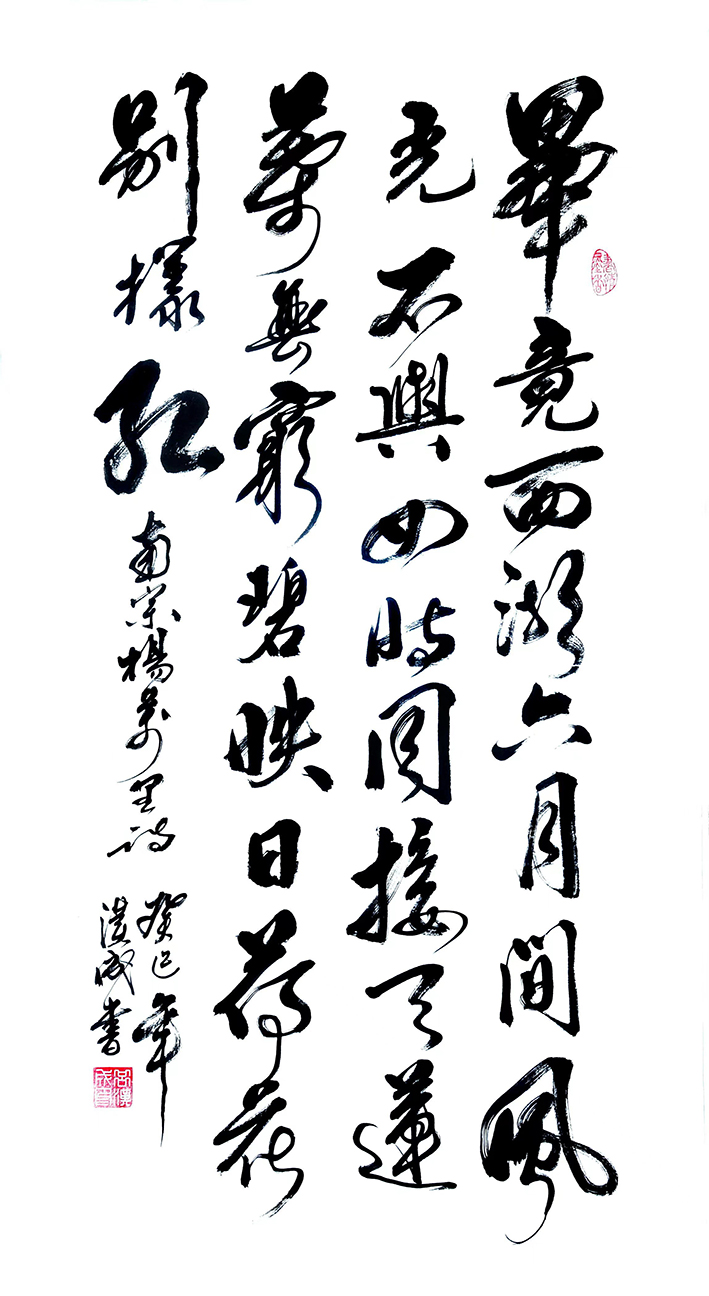 畢竟西湖六月間風
光不與四時同接天蓮
葉無窮碧映日荷花
別樣紅
南宋楊萬里詩
癸巳年
漢成書